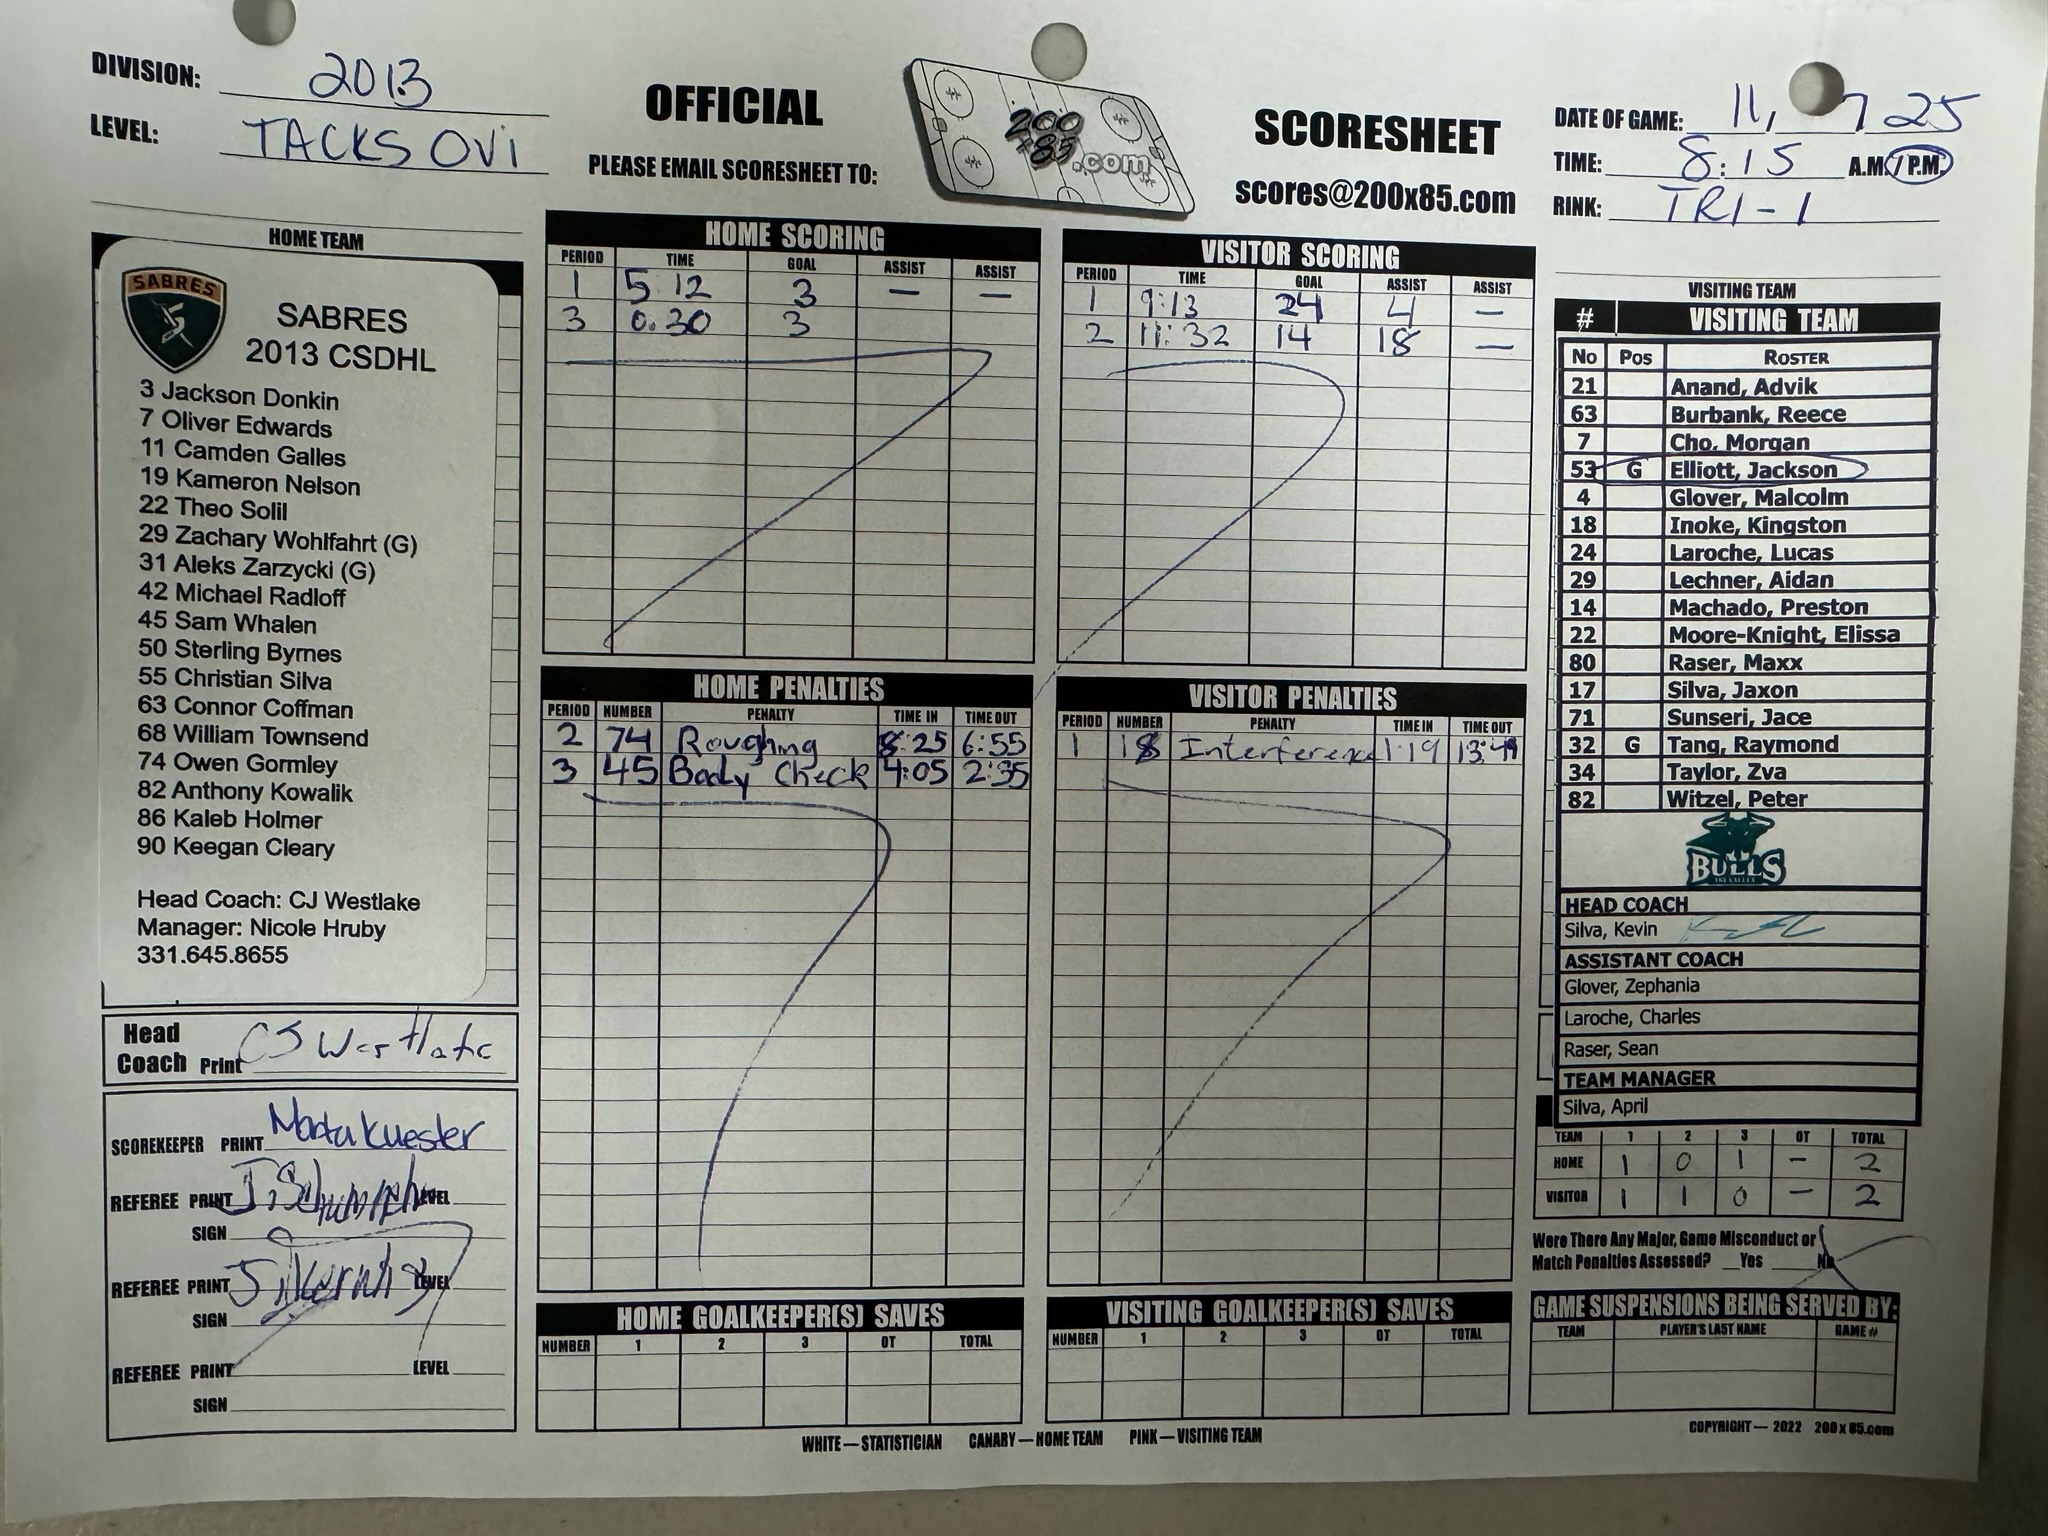 DIVISION: 2013
LEVEL: TACKS OVI
OFFICIAL
PLEASE EMAIL SCORESHEET TO:
200
x85
.com
SCORESHEET
scores@200x85.com
DATE OF GAME: 11, 7 25
TIME: 8:15 A.M./P.M.
RINK: TRI-1
HOME TEAM
SABRES
SABRES
2013 CSDHL
3 Jackson Donkin
7 Oliver Edwards
11 Camden Galles
19 Kameron Nelson
22 Theo Solil
29 Zachary Wohlfahrt (G)
31 Aleks Zarzycki (G)
42 Michael Radloff
45 Sam Whalen
50 Sterling Byrnes
55 Christian Silva
63 Connor Coffman
68 William Townsend
74 Owen Gormley
82 Anthony Kowalik
86 Kaleb Holmer
90 Keegan Cleary
Head Coach: CJ Westlake
Manager: Nicole Hruby
331.645.8655
Head Coach Print CJ Westlake
SCOREKEEPER PRINT
REFEREE PRINT LEVEL
SIGN
REFEREE PRINT LEVEL
SIGN
REFEREE PRINT LEVEL
SIGN
HOME SCORING
PERIOD TIME GOAL ASSIST ASSIST
1 5:12 3 — —
3 0:30 3
VISITOR SCORING
PERIOD TIME GOAL ASSIST ASSIST
1 9:13 24 4 —
2 11:32 14 18 —
HOME PENALTIES
PERIOD NUMBER PENALTY TIME IN TIME OUT
2 74 Roughing 8:25 6:55
3 45 Body Check 4:05 2:35
VISITOR PENALTIES
PERIOD NUMBER PENALTY TIME IN TIME OUT
1 18 Interference 1:19 13:49
HOME GOALKEEPER(S) SAVES
NUMBER 1 2 3 OT TOTAL
VISITING GOALKEEPER(S) SAVES
NUMBER 1 2 3 OT TOTAL
WHITE—STATISTICIAN CANARY—HOME TEAM PINK—VISITING TEAM
VISITING TEAM
# VISITING TEAM
No Pos ROSTER
21 Anand, Advik
63 Burbank, Reece
7 Cho, Morgan
53 G Elliott, Jackson
4 Glover, Malcolm
18 Inoke, Kingston
24 Laroche, Lucas
29 Lechner, Aidan
14 Machado, Preston
22 Moore-Knight, Elissa
80 Raser, Maxx
17 Silva, Jaxon
71 Sunseri, Jace
32 G Tang, Raymond
34 Taylor, Zva
82 Witzel, Peter
BULLS
HEAD COACH
Silva, Kevin
ASSISTANT COACH
Glover, Zephania
Laroche, Charles
Raser, Sean
TEAM MANAGER
Silva, April
TEAM 1 2 3 OT TOTAL
HOME 1 0 1 — 2
VISITOR 1 1 0 — 2
Were There Any Major, Game Misconduct or
Match Penalties Assessed? __Yes ____No
GAME SUSPENSIONS BEING SERVED BY:
TEAM PLAYER'S LAST NAME GAME #
COPYRIGHT— 2022 200x85.com